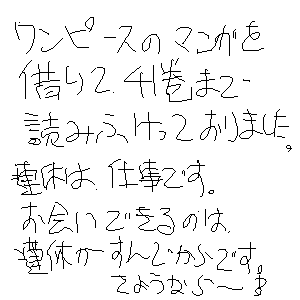 ワンピースのマンガを
借りて、41巻まで
読みふけっておりました。
連休は、仕事です。
お会いできるのは、
連休がすんでからです。
さようなら〜